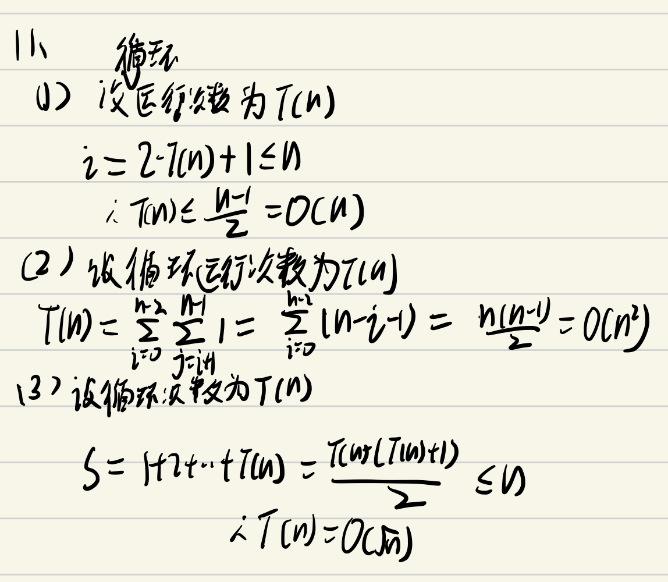 11、
(1) 设循环运行次数为T(n)
i = 2·T(n)+1 ≤ n
∴ T(n) ≤ \frac{n-1}{2} = O(n)
(2) 设循环运行次数为T(n)
T(n) = \sum_{i=0}^{n-2} \sum_{j=i+1}^{n-1} 1 = \sum_{i=0}^{n-2} (n-i-1) = \frac{n(n-1)}{2} = O(n²)
(3) 设循环次数为T(n)
S = 1+2+…+T(n) = \frac{T(n)(T(n)+1)}{2} ≤ n
∴ T(n) = O(√n)